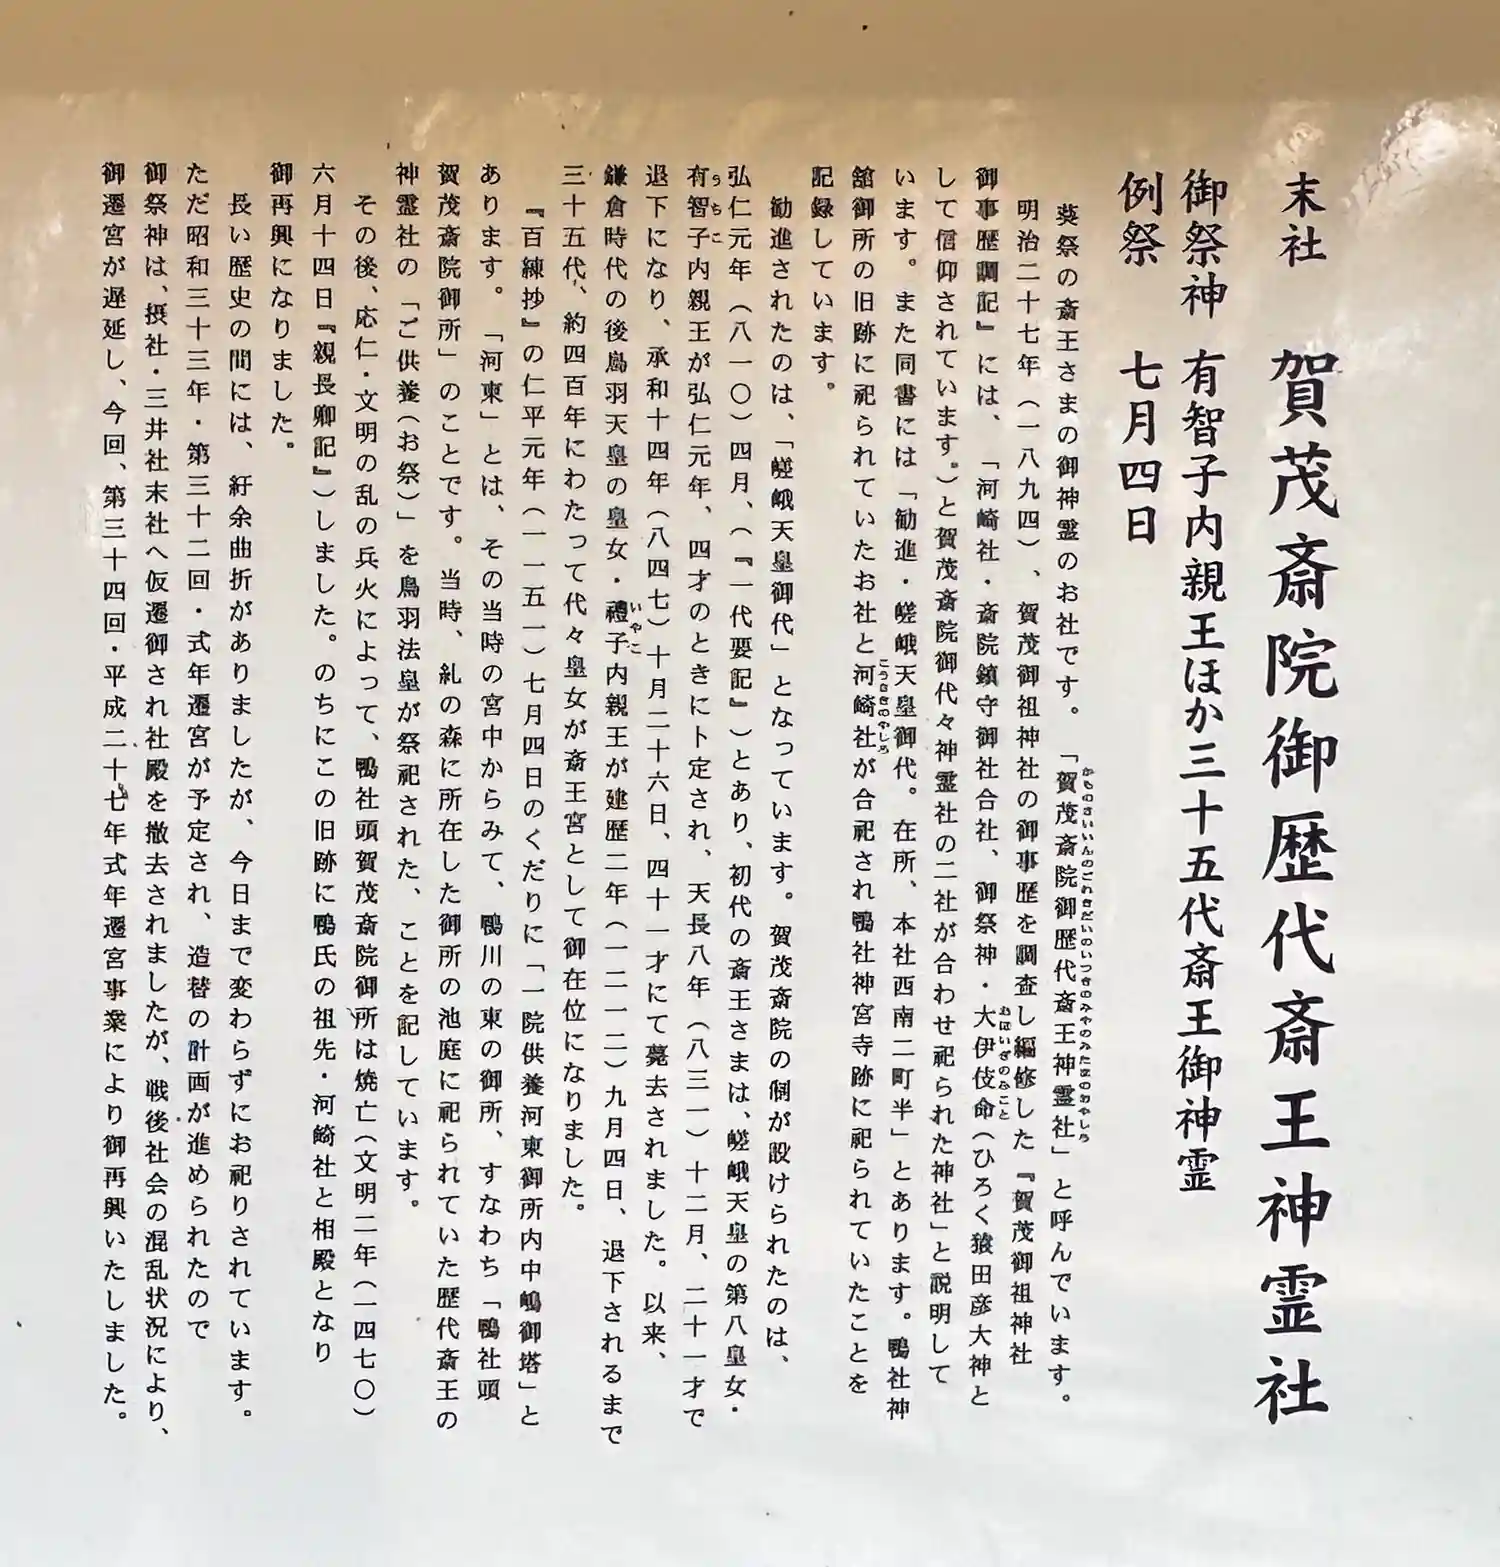 末社　賀茂斎院御歴代斎王神霊社
御祭神　有智子内親王ほか三十五代斎王御神霊
例祭　七月四日
葵祭の斎王さまの御神霊のお社です。「賀茂斎院御歴代斎王神霊社」と呼んでいます。
明治二十七年（一八九四）、賀茂御祖神社の御事歴を調査し編修した『賀茂御祖神社
御事歴調記』には、「河崎社・斎院鎮守御社合社、御祭神・大伊伎命（ひろく猿田彦大神と
して信仰されています。）と賀茂斎院御代々神霊社の二社が合わせ祀られた神社」と説明して
います。また同書には「勧進・嵯峨天皇御代。在所、本社西南二町半」とあります。鴨社神
舘御所の旧跡に祀られていたお社と河崎社が合祀され鴨社神宮寺跡に祀られていたことを
記録しています。
勧進されたのは、「嵯峨天皇御代」となっています。賀茂斎院の制が設けられたのは、
弘仁元年（八一〇）四月、（『一代要記』）とあり、初代の斎王さまは、嵯峨天皇の第八皇女・
有智子内親王が弘仁元年、四才のときに卜定され、天長八年（八三一）十二月、二十一才で
退下になり、承和十四年（八四七）十月二十六日、四十一才にて薨去されました。以来、
鎌倉時代の後鳥羽天皇の皇女・禮子内親王が建歴二年（一二一二）九月四日、退下されるまで
三十五代、約四百年にわたって代々皇女が斎王宮として御在位になりました。
『百練抄』の仁平元年（一一五一）七月四日のくだりに「一院供養河東御所内中嶋御塔」と
あります。「河東」とは、その当時の宮中からみて、鴨川の東の御所、すなわち「鴨社頭
賀茂斎院御所」のことです。当時、糺の森に所在した御所の池庭に祀られていた歴代斎王の
神霊社の「ご供養（お祭）」を鳥羽法皇が祭祀された、ことを記しています。
その後、応仁・文明の乱の兵火によって、鴨社頭賀茂斎院御所は焼亡（文明二年（一四七〇）
六月十四日『親長卿記』）しました。のちにこの旧跡に鴨氏の祖先・河崎社と相殿となり
御再興になりました。
長い歴史の間には、紆余曲折がありましたが、今日まで変わらずにお祀りされています。
ただ昭和三十三年・第三十二回・式年遷宮が予定され、造替の計画が進められたので
御祭神は、摂社・三井社末社へ仮遷御され社殿を撤去されましたが、戦後社会の混乱状況により、
御遷宮が遅延し、今回、第三十四回・平成二十七年式年遷宮事業により御再興いたしました。